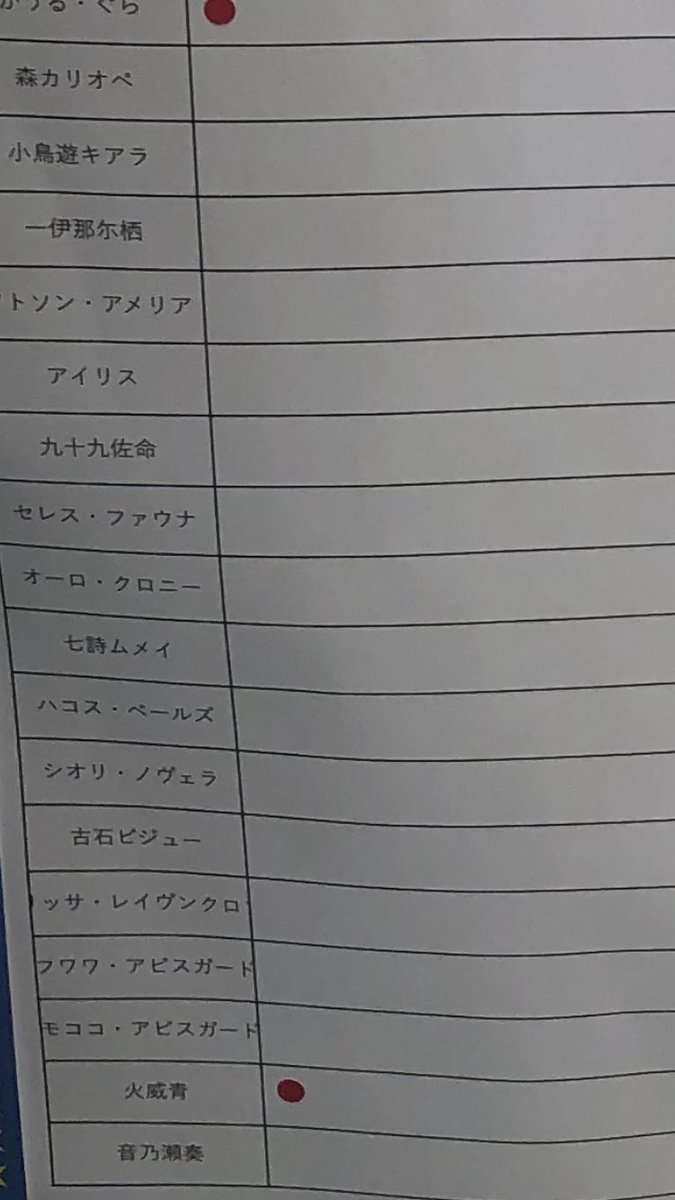 がうる・ぐら
森カリオペ
小鳥遊キアラ
一伊那尓栖
トソン・アメリア
アイリス
九十九佐命
セレス・ファウナ
オーロ・クロニー
七詩ムメイ
ハコス・ベールズ
シオリ・ノヴェラ
古石ビジュー
ッサ・レイヴンクロ
フワワ・アビスガード
モココ・アビスガード
火威青
音乃瀬奏